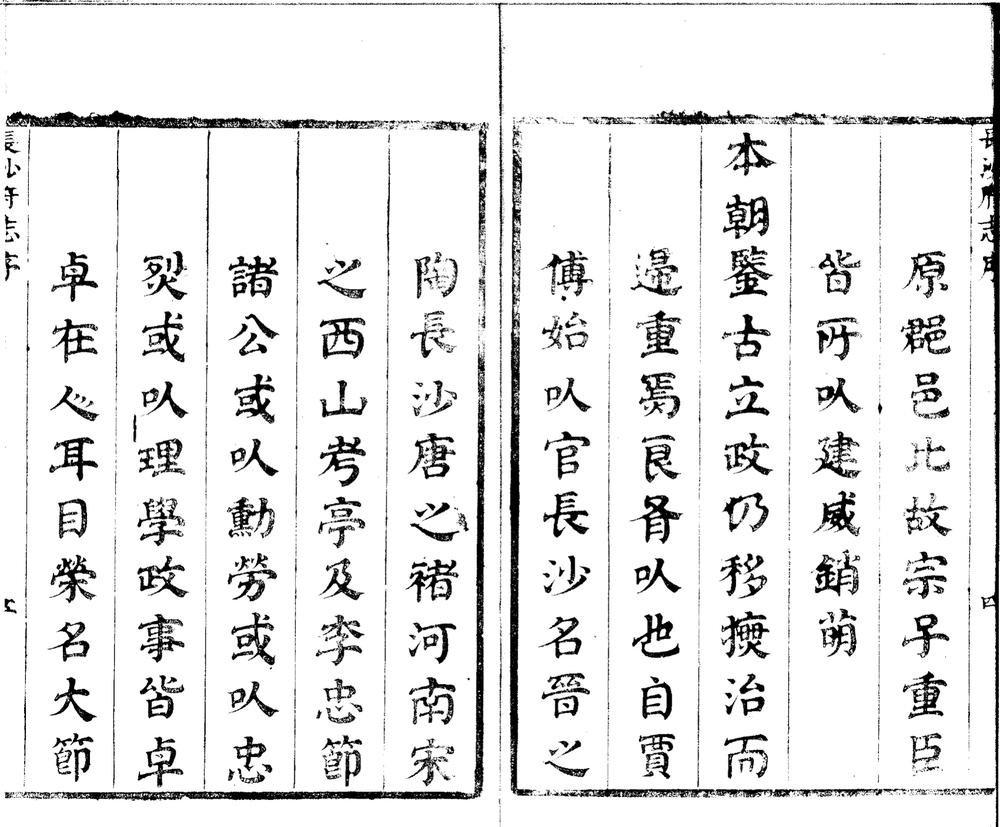 長沙府志序
四
原郡邑比故宗子重臣
皆所㕥建威銷萌
本朝鑒古立政仍移撫治而
歸重焉良有㕥也自賈
傅始㕥官長沙名晉之
陶長沙唐之褚河南宋
之西山考亭及李忠節
諸公或㕥勳勞或㕥忠
烈或㕥理學政事皆卓
卓在人心耳目榮名大節
長沙府志序
五